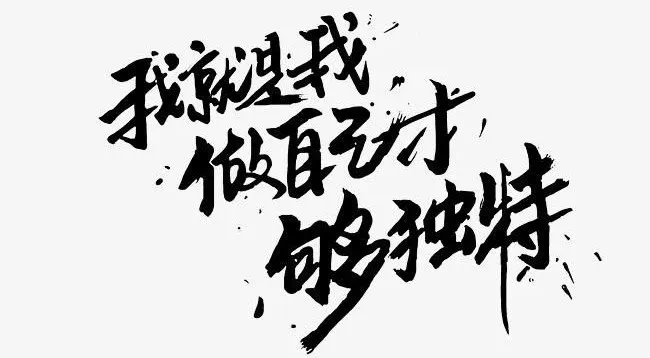 我就是我
做自己才
够独特